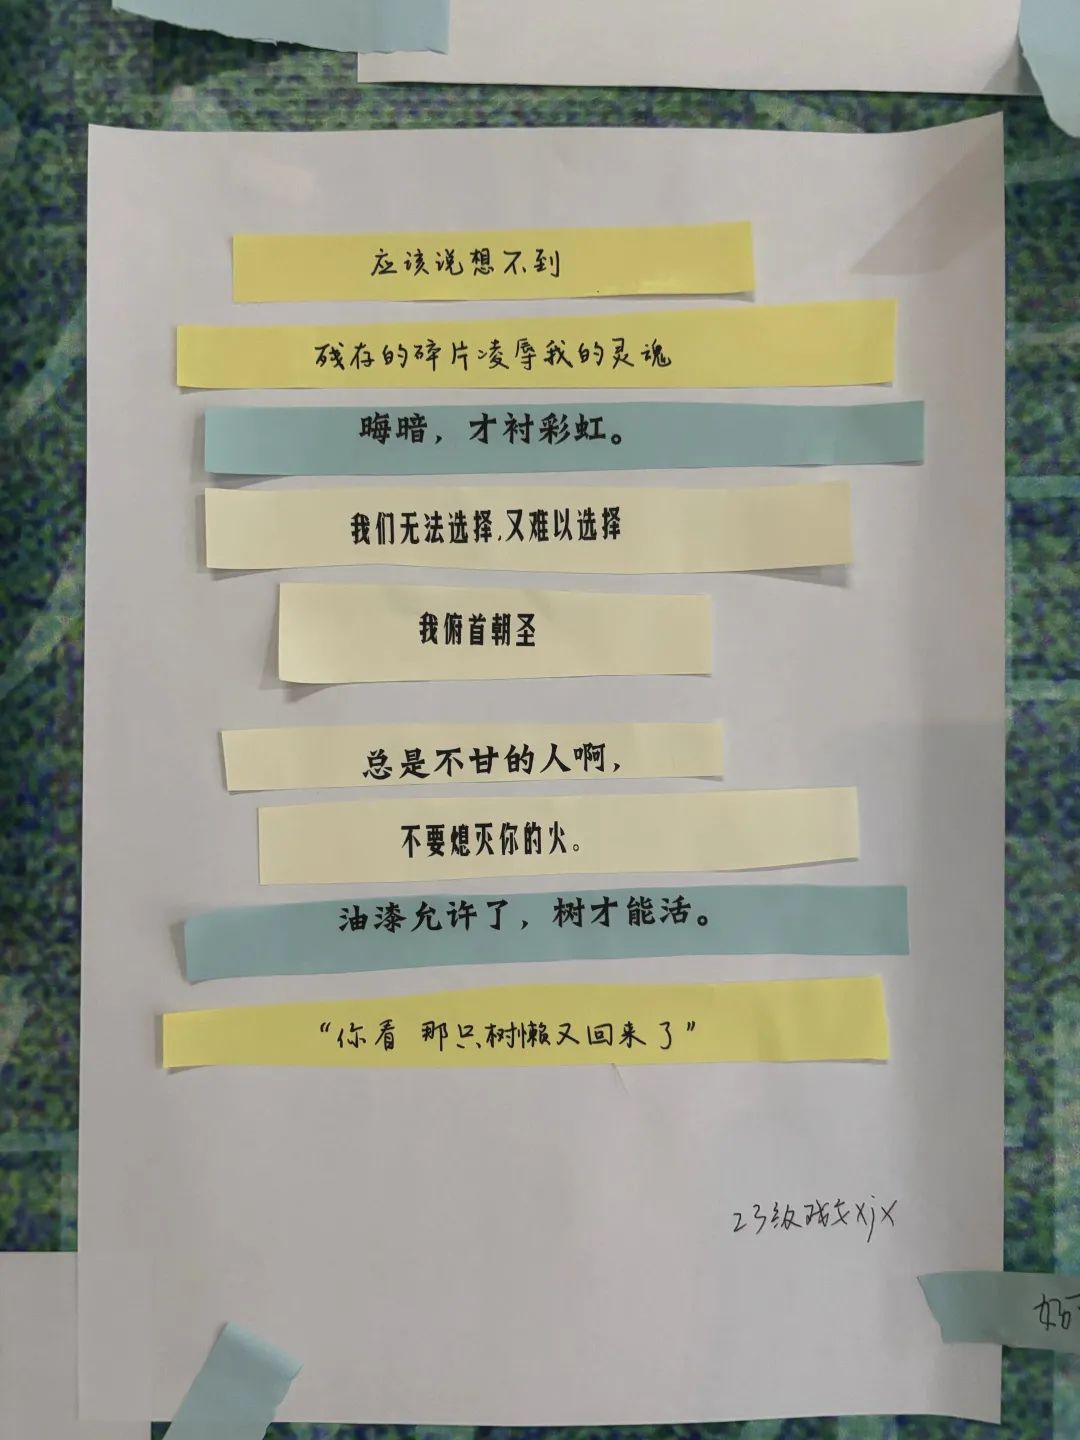 应该说想不到
残存的碎片凌辱我的灵魂
晦暗，才衬彩虹。
我们无法选择,又难以选择
我俯首朝圣
总是不甘的人啊，
不要熄灭你的火。
油漆允许了，树才能活。
“你看 那只树懒又回来了”
23级戏文xjx